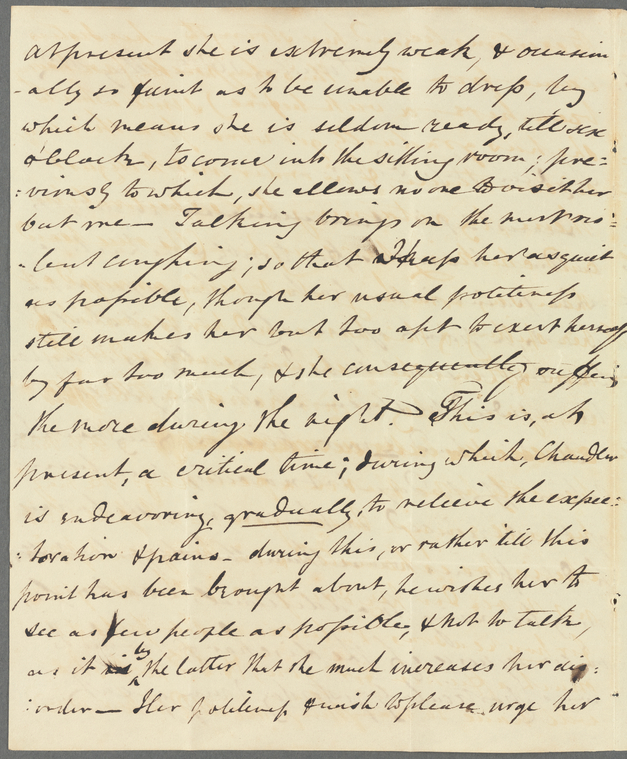 at present she is extremely weak, & occasion
-ally so faint as to be unable to dress, by
which means she is seldom ready, till six
o'clock, to come into the sitting room; pre-
:viously to which, she allows no one to visit her
but me— Talking brings on the most vio
-lent coughing; so that I keep her as quiet
as possible, though her usual politeness
still makes her but too apt to exert herself
by far too much, & she consequently suffers
the more during the night. This is, at
present, a critical time; during which, Chandler
is endeavoring, gradually, to relieve the expec:
:toration & pains— during this, or rather till this
point has been brought about, he wishes her to
see as few people as possible, & not to talk,
as it is by the latter that she much increases her dis:
:order— Her politeness & wish to please urge her